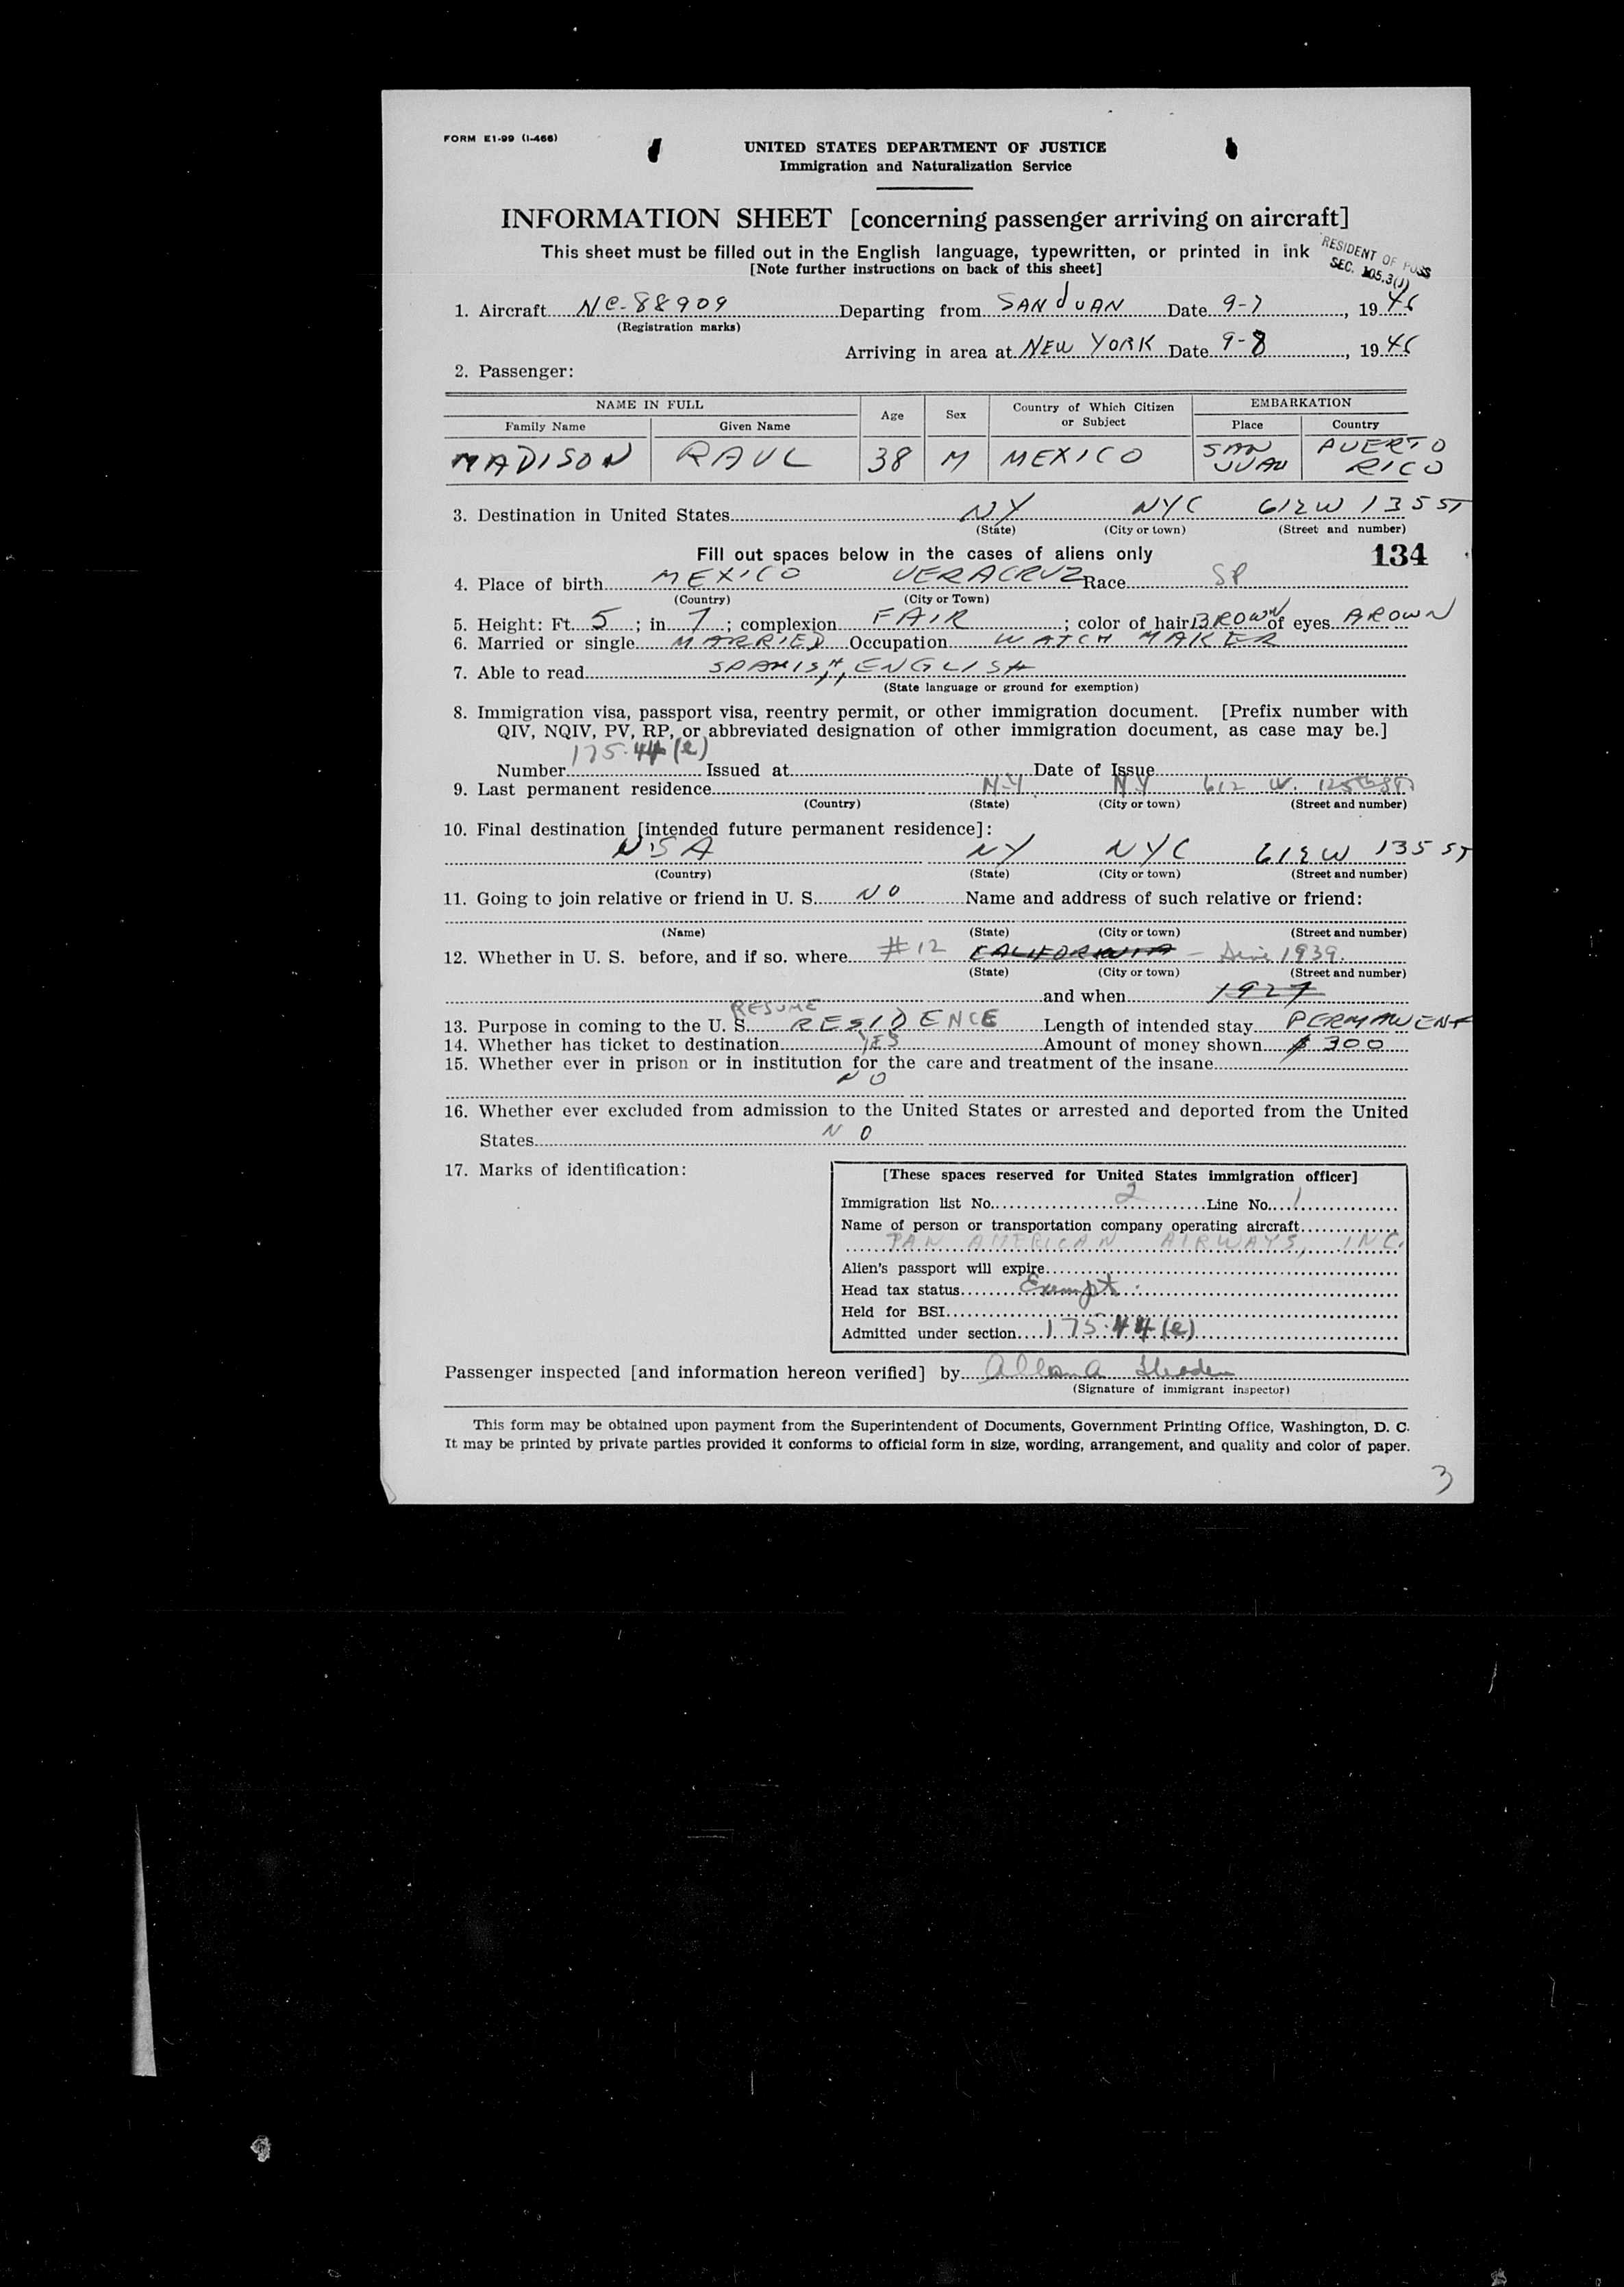 FORM E1-99 (I-466)
UNITED STATES DEPARTMENT OF JUSTICE
Immigration and Naturalization Service
INFORMATION SHEET [concerning passenger arriving on aircraft]
This sheet must be filled out in the English language, typewritten, or printed in ink
[Note further instructions on back of this sheet]
RESIDENT OF POSS
SEC. 105.3(J)
1. Aircraft NC-88909 Departing from SAN JUAN Date 9-7, 1946
(Registration marks)
Arriving in area at NEW YORK Date 9-8, 1946
2. Passenger:
NAME IN FULL Age Sex Country of Which Citizen or Subject EMBARKATION
Family Name Given Name Place Country
MADISON RAUL 38 M MEXICO SAN JUAN PUERTO RICO
3. Destination in United States NY NYC 612 W 135 ST
(State) (City or town) (Street and number)
Fill out spaces below in the cases of aliens only 134
4. Place of birth MEXICO VERACRUZ Race SP
(Country) (City or Town)
5. Height: Ft. 5; in. 7; complexion FAIR; color of hair BROWN of eyes BROWN
6. Married or single MARRIED Occupation WATCH MAKER
7. Able to read SPANISH, ENGLISH
(State language or ground for exemption)
8. Immigration visa, passport visa, reentry permit, or other immigration document. [Prefix number with
QIV, NQIV, PV, RP, or abbreviated designation of other immigration document, as case may be.]
Number 175.44(e) Issued at Date of Issue
9. Last permanent residence N.Y. NY 612 W.
(Country) (State) (City or town) (Street and number)
10. Final destination [intended future permanent residence]:
USA NY NYC 612 W 135 ST
(Country) (State) (City or town) (Street and number)
11. Going to join relative or friend in U. S. NO Name and address of such relative or friend:
(Name) (State) (City or town) (Street and number)
12. Whether in U. S. before, and if so. where #12 CALIFORNIA - 1939.
(State) (City or town) (Street and number)
and when 1927
13. Purpose in coming to the U. S. RESUME RESIDENCE Length of intended stay PERMANENT
14. Whether has ticket to destination YES Amount of money shown $ 300
15. Whether ever in prison or in institution for the care and treatment of the insane
NO
16. Whether ever excluded from admission to the United States or arrested and deported from the United
States NO
17. Marks of identification:
[These spaces reserved for United States immigration officer]
Immigration list No. 2 Line No. 1
Name of person or transportation company operating aircraft
PAN AMERICAN AIRWAYS, INC.
Alien's passport will expire
Head tax status Exempt
Held for BSI
Admitted under section 175.44(e)
Passenger inspected [and information hereon verified] by Allan A
(Signature of immigrant inspector)
This form may be obtained upon payment from the Superintendent of Documents, Government Printing Office, Washington, D. C.
It may be printed by private parties provided it conforms to official form in size, wording, arrangement, and quality and color of paper.
3